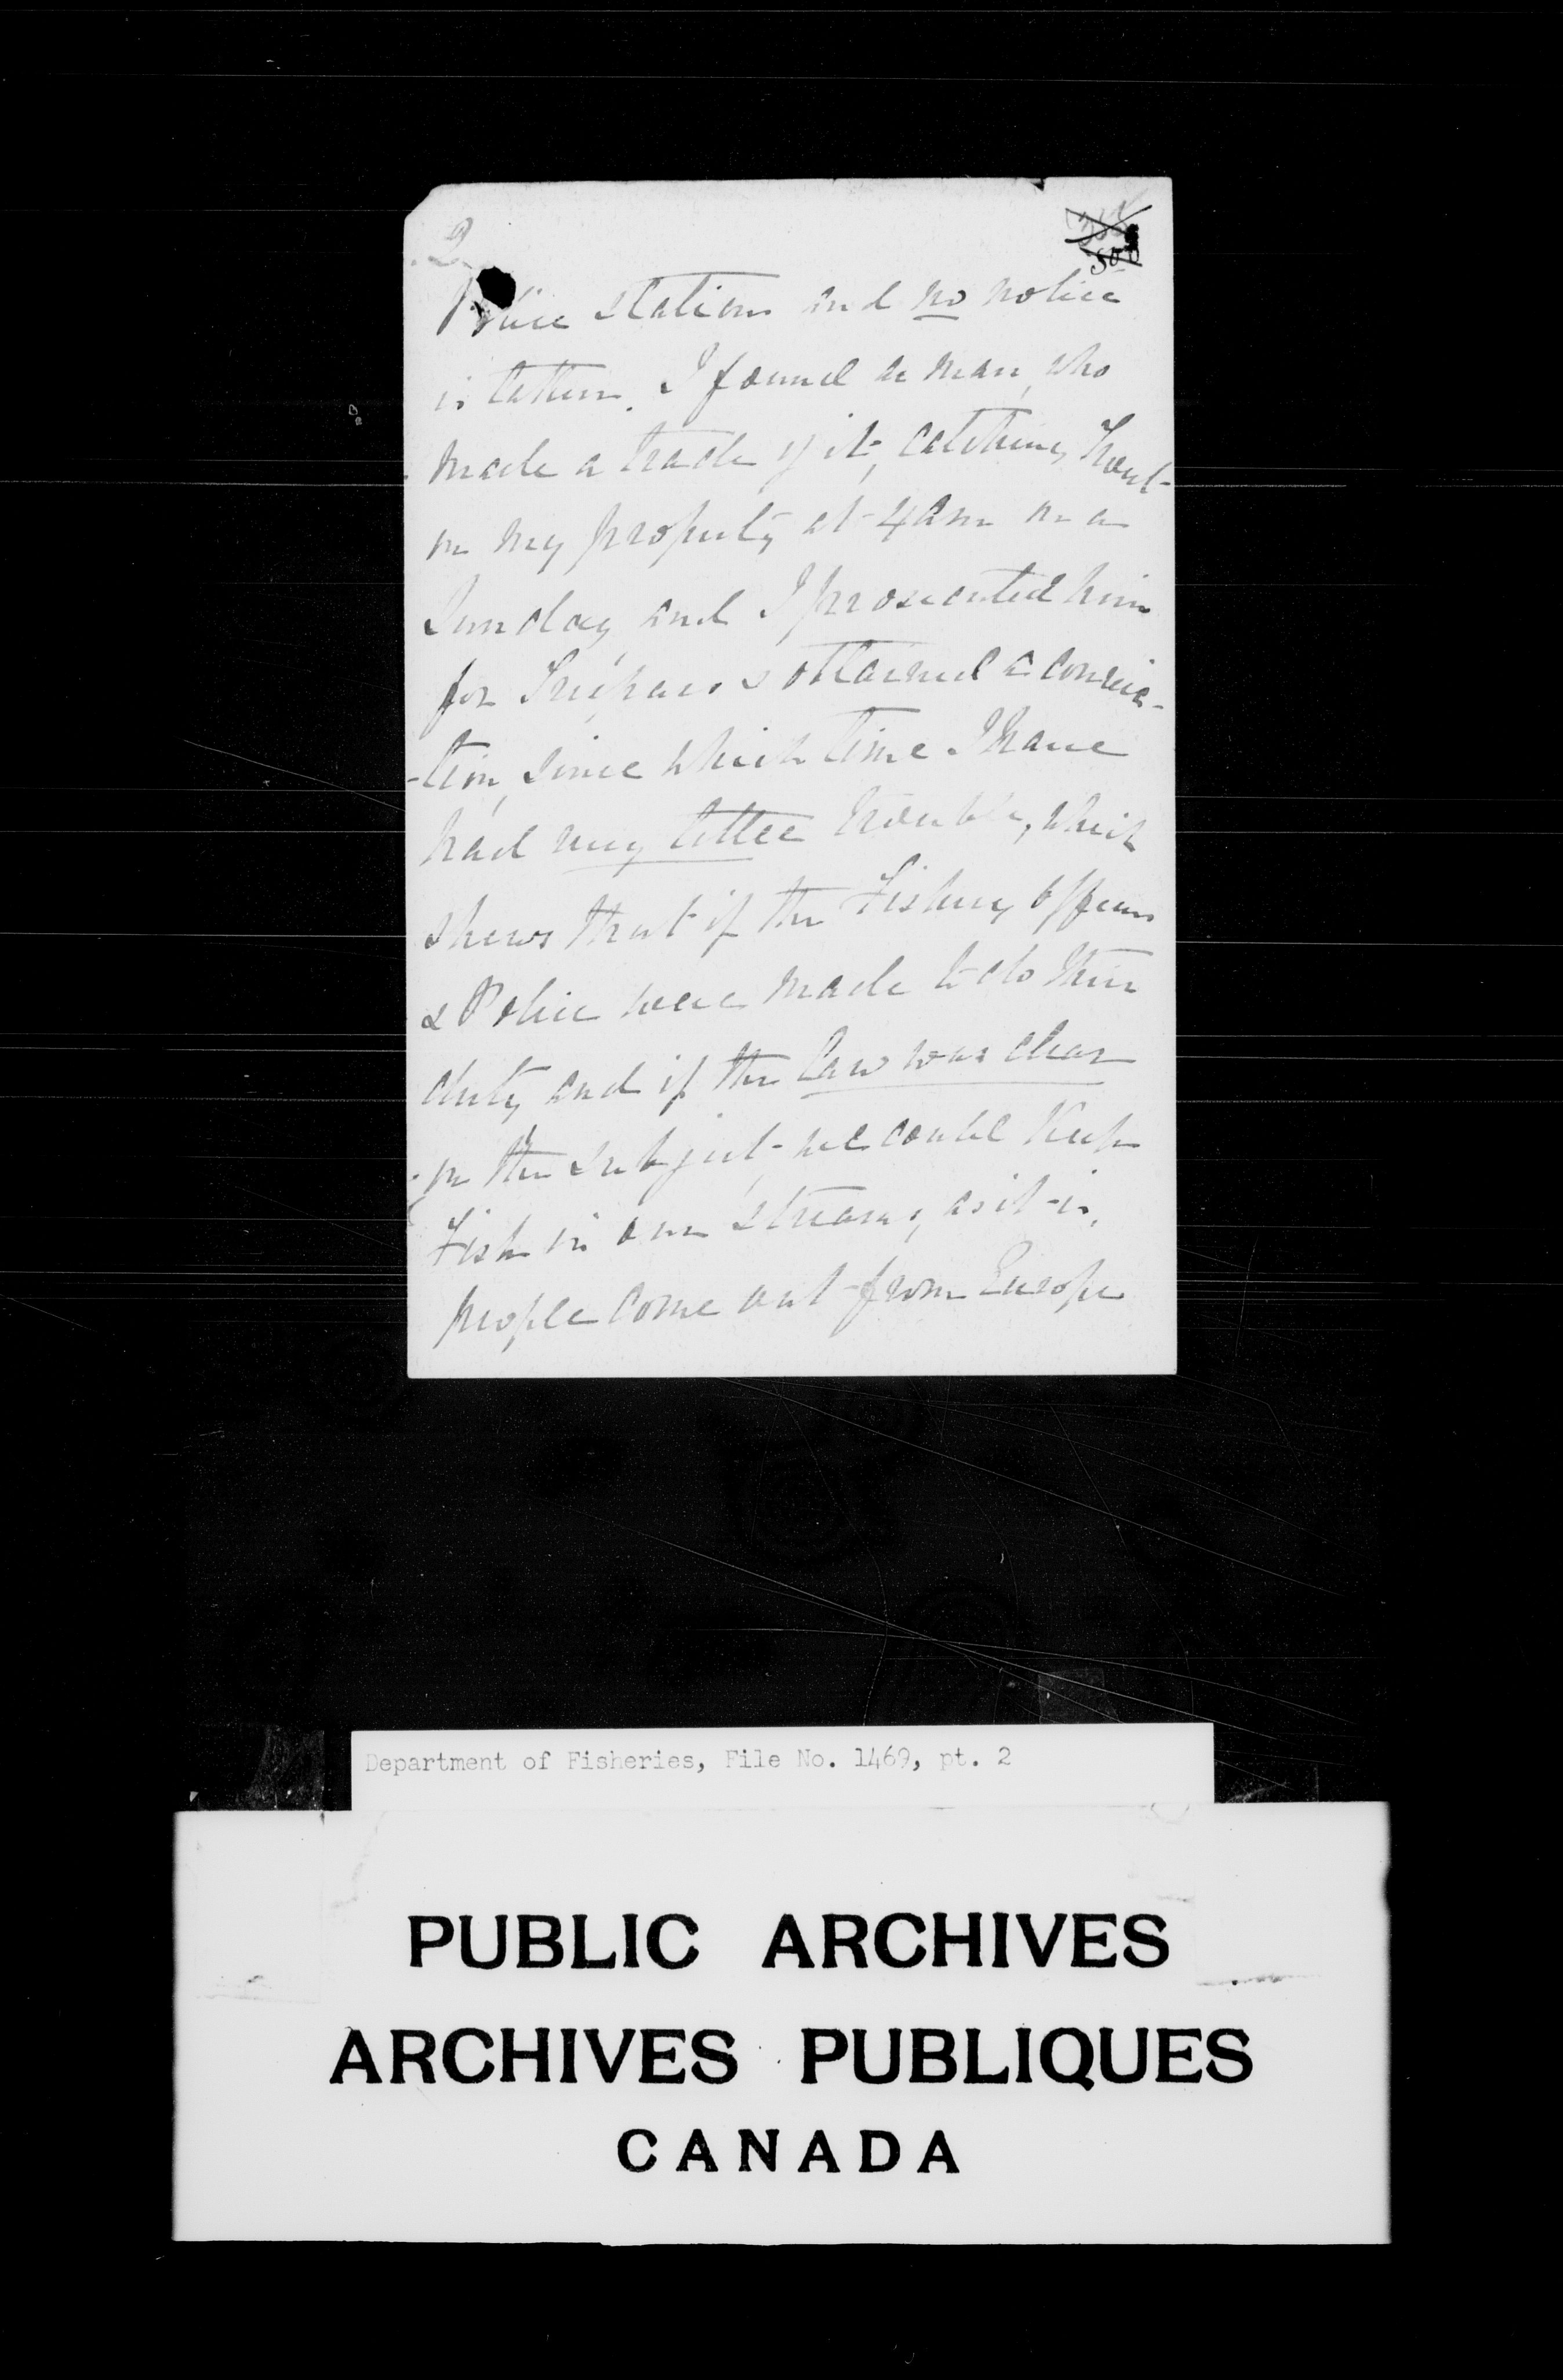 2
500
Police Station and no notice
is taken. I found a man, who
made a trade of it, catching Trout
on my property at 4 am on a
Sunday and I prosecuted him
for Trespass & obtained a convic-
-tion, since which time I have
had very little trouble, which
shews that if the Fishery Officers
& Police were made to do their
duty and if the law was clear
on the subject we could keep
Fish in our streams, as it is,
people come out from Europe
Department of Fisheries, File No. 1469, pt. 2
PUBLIC ARCHIVES
ARCHIVES PUBLIQUES
CANADA